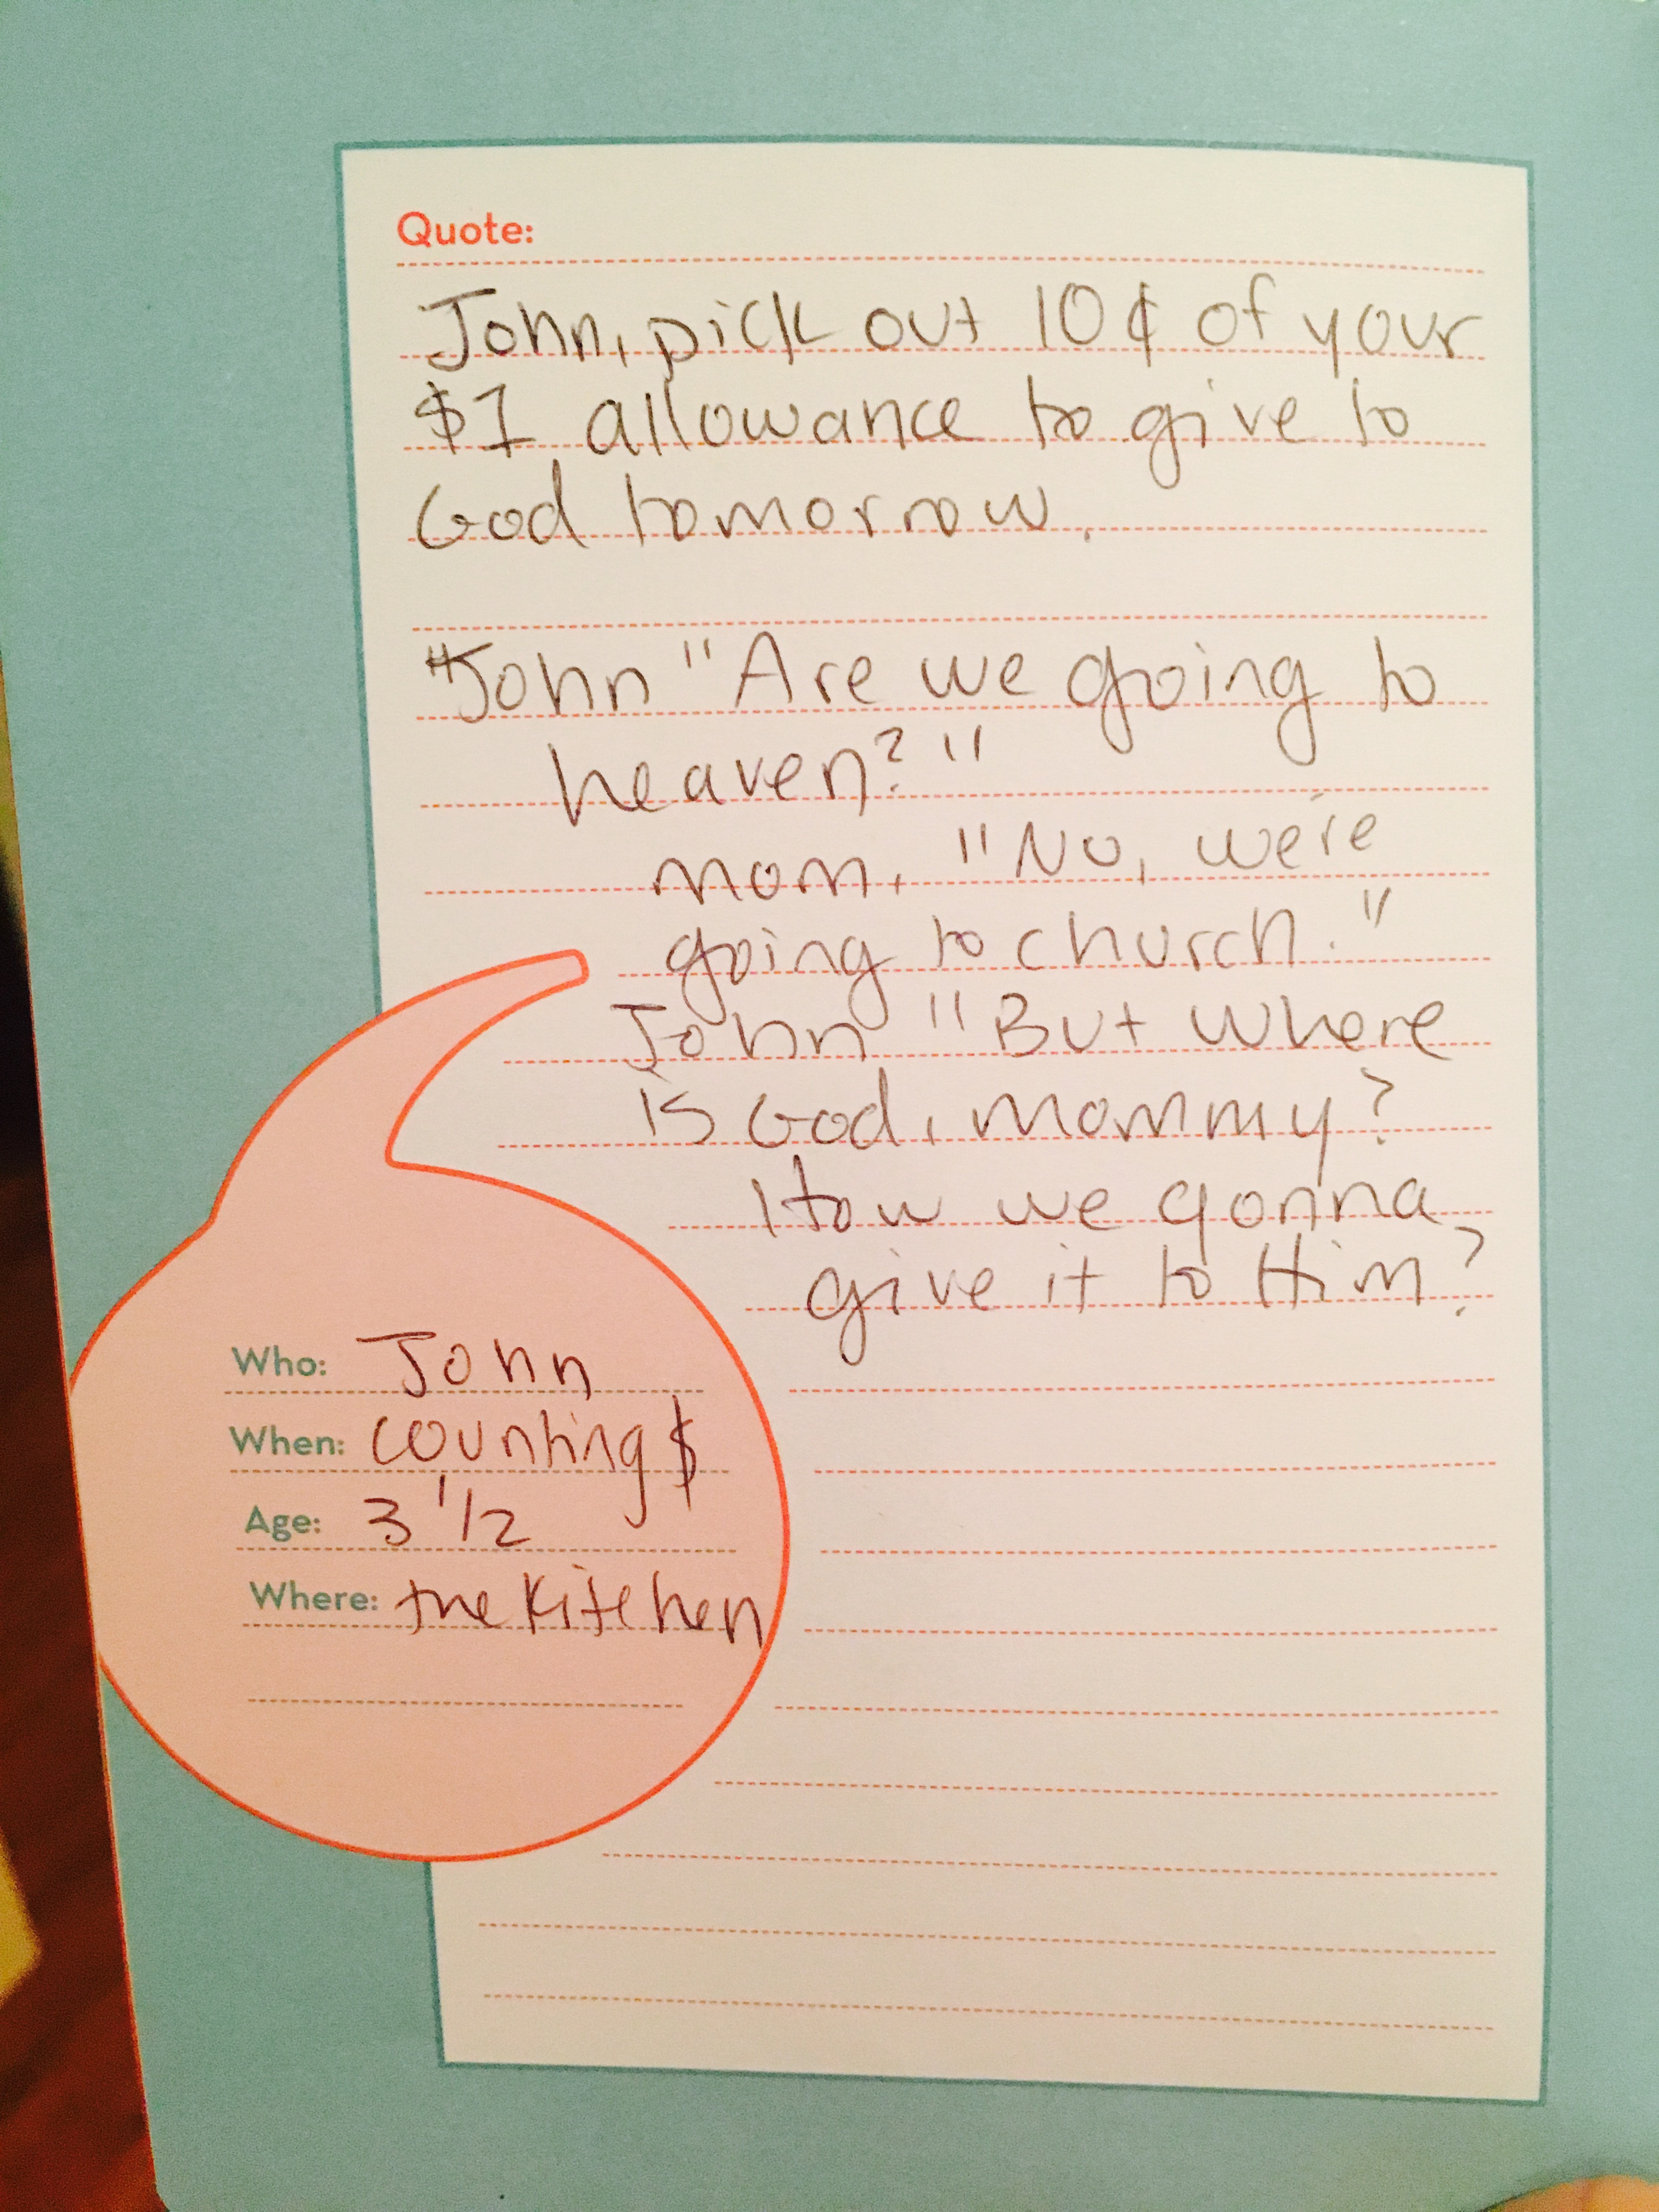 Quote:
John, pick out 10¢ of your
$1 allowance to give to
God tomorrow.
"John "Are we going to
heaven?"
mom, "No, we're
going to church."
John "But where
is God, mommy?
How we gonna
give it to Him?
Who: John
When: counting $
Age: 3 1/2
Where: the kitchen